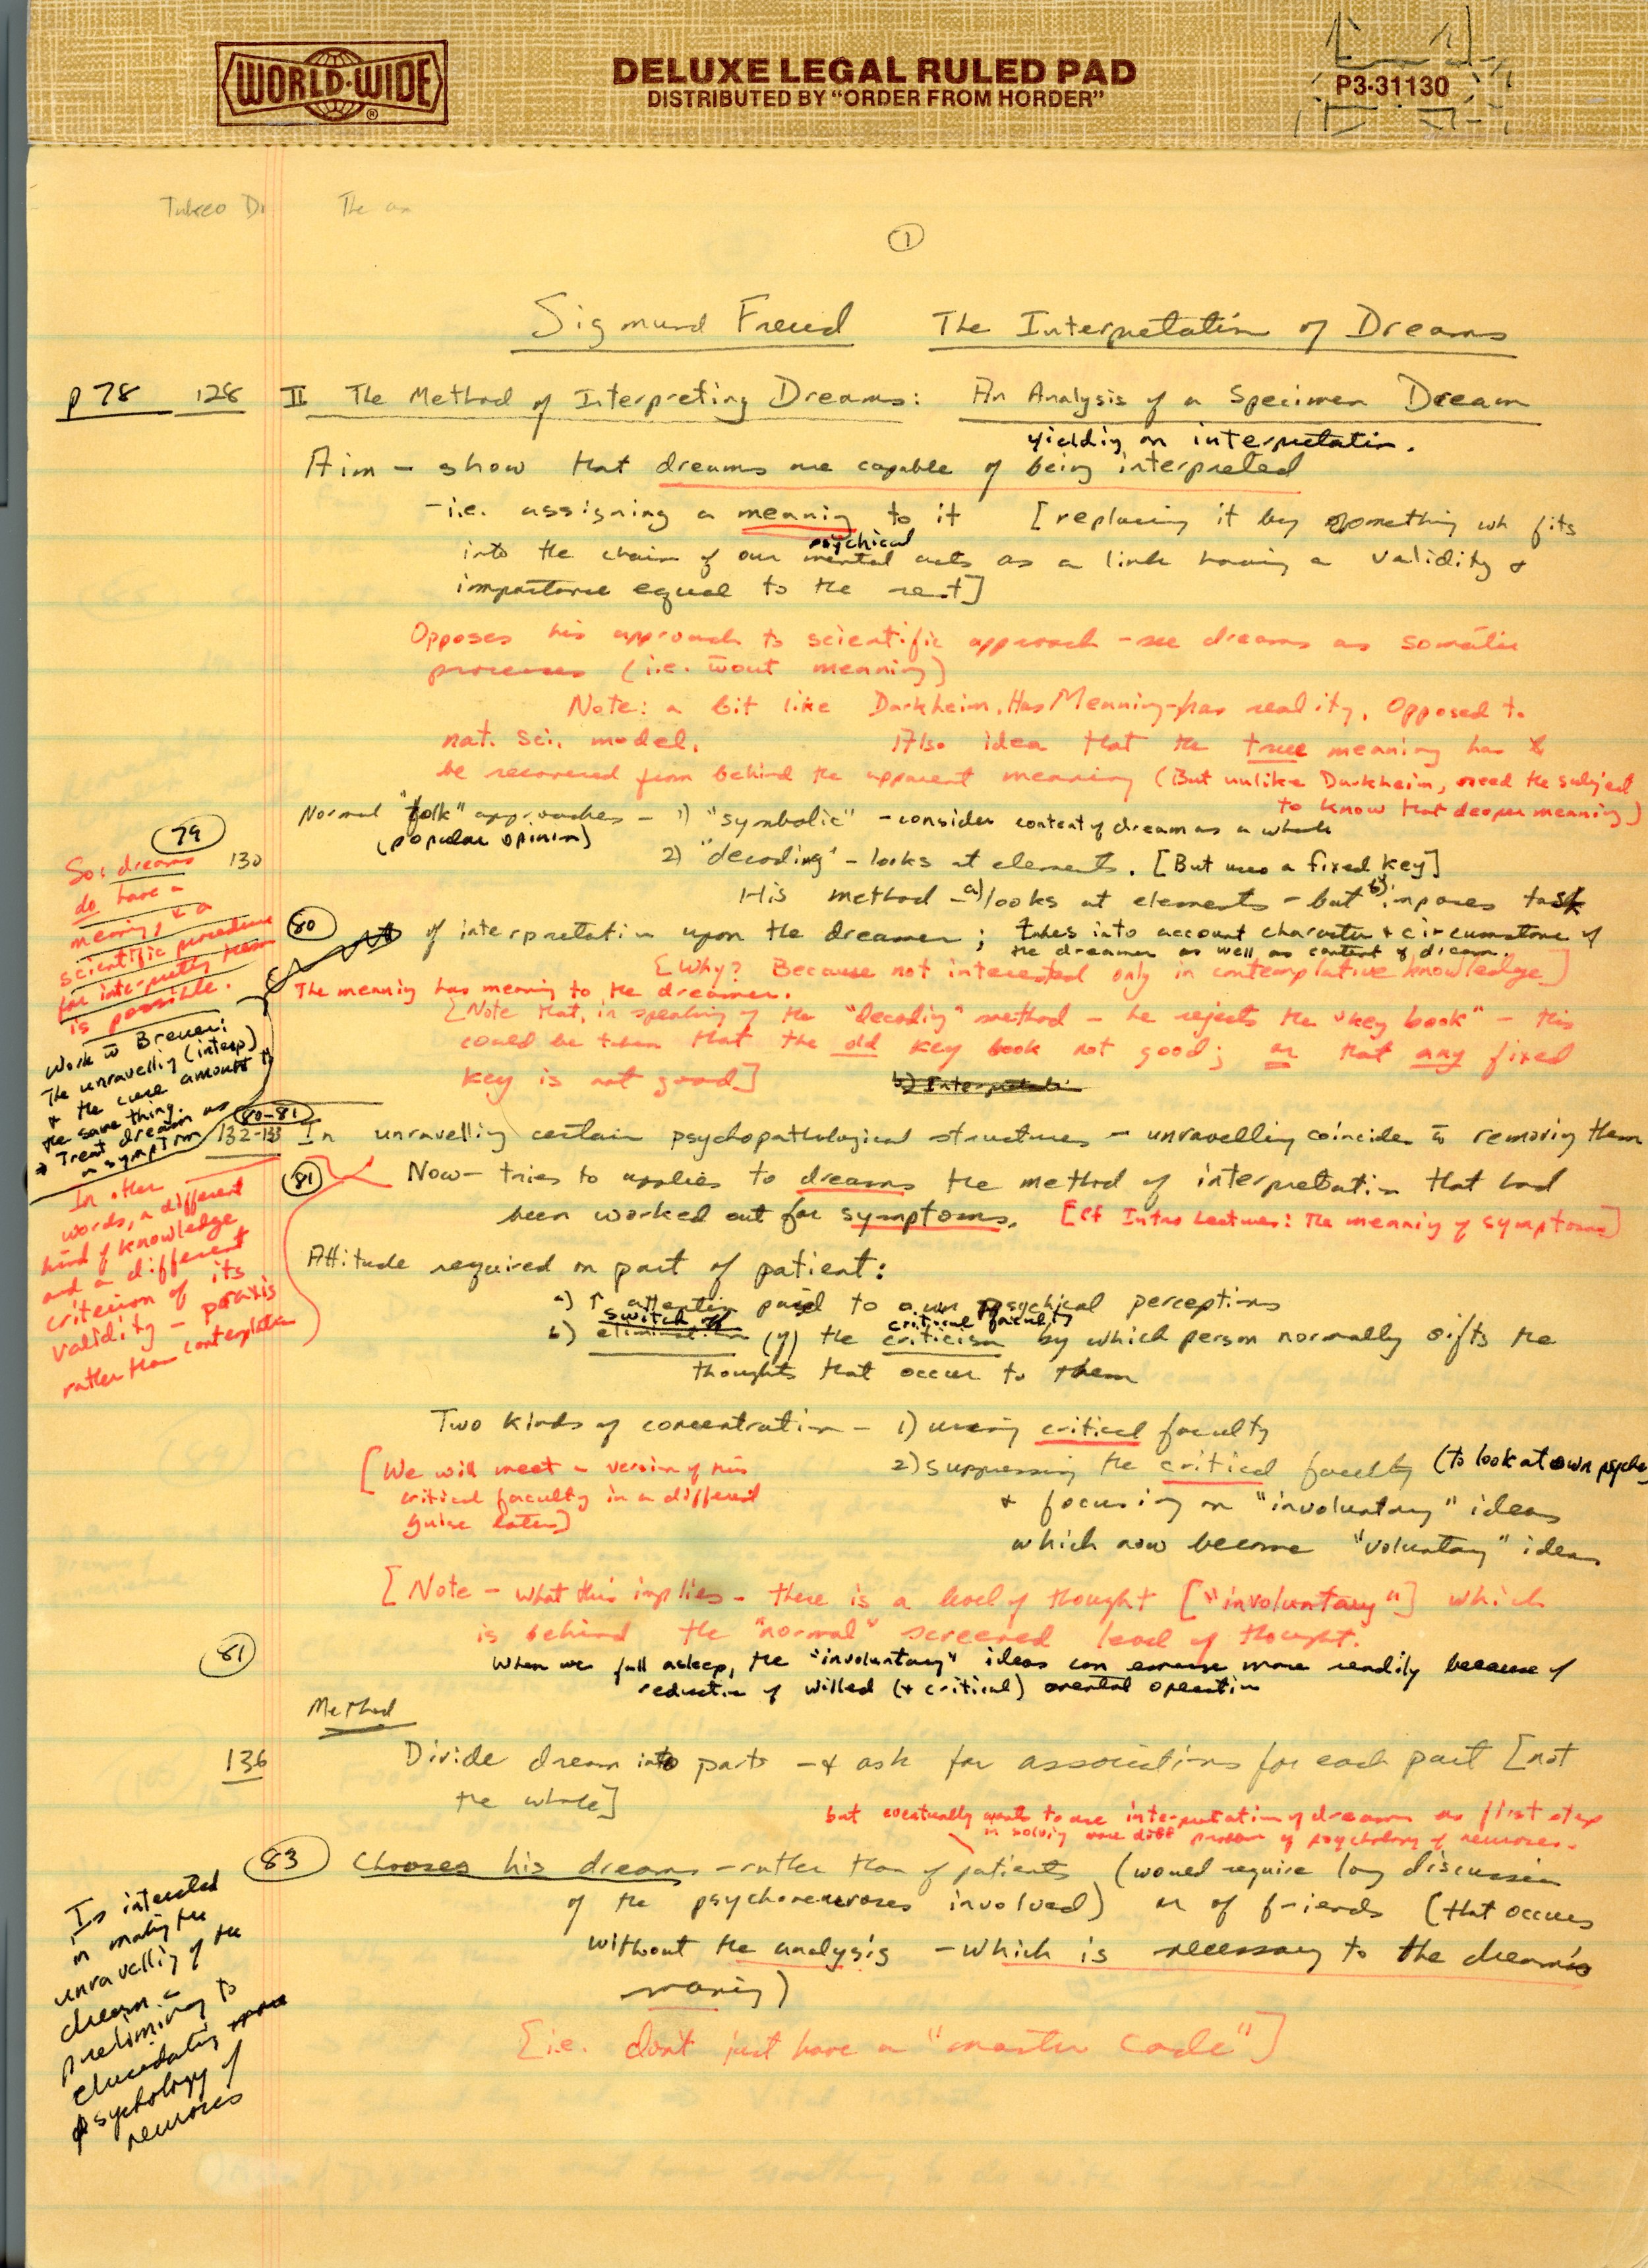 WORLD-WIDE ®
DELUXE LEGAL RULED PAD
DISTRIBUTED BY "ORDER FROM HORDER"
P3-31130
The
①
Sigmund Freud The Interpretation of Dreams
p 78 128 II The Method of Interpreting Dreams: An Analysis of a Specimen Dream
yielding an interpretation.
Aim - show that dreams are capable of being interpreted
- i.e. assigning a meaning to it [replacing it by something wh fits
psychical
into the chain of our mental acts as a link having a validity +
importance equal to the rest]
Opposes his approach to scientific approach - see dreams as somatic
processes (i.e. w̄out meaning)
Note: a bit like Durkheim. Has Meaning - has reality. Opposed to
nat. sci. model. Also idea that the true meaning has to
be recovered from behind the apparent meaning (But unlike Durkheim, need the subject
to know that deeper meaning)
Normal "folk" approaches - 1) "symbolic" - consider content of dream as a whole
(popular opinion)
2) "decoding" - looks at elements. [But uses a fixed key]
His method - a) looks at elements - but b) imposes task
80
of interpretation upon the dreamer; takes into account character + circumstance of
the dreamer as well as content of dream.
[Why? Because not interested only in contemplative knowledge]
The meaning has meaning to the dreamer.
[Note that, in speaking of the "decoding" method - he rejects the "key book" - this
could be taken that the old key book not good; or that any fixed
key is not good]
b) Interpretati
79
130
So: dreams
do have a
meaning, + a
scientific procedure
for interpreting them
is possible.
Work w̄ Breuer:
The unravelling (interp)
+ the cure amount to
the same thing.
→ Treat dream as
a symptom
80-81
132-133 In unravelling certain psychopathological structures - unravelling coincides w̄ removing them
81 Now - tries to applies to dreams the method of interpretation that had
been worked out for symptoms. [Cf Intro Lectures: The meaning of symptoms]
In other
words, a different
kind of knowledge
and a different
criterion of its
validity - praxis
rather than contemplation
Attitude required on part of patient:
a) ↑ attention paid to own psychical perceptions
switch off critical faculty
b) elimination (of) the criticism by which person normally sifts the
thoughts that occur to them
Two kinds of concentration - 1) using critical faculty
2) suppressing the critical faculty (to look at own psyche)
+ focusing on "involuntary" ideas
which now become "voluntary" ideas
[We will meet a version of this
critical faculty in a different
guise later]
[Note - what this implies - there is a level of thought ["involuntary"] which
is behind the "normal" screened level of thought.
81
When we fall asleep, the "involuntary" ideas can emerge more readily because of
reduction of willed (+ critical) mental operation
Method
136 Divide dream into parts - + ask for associations for each part [not
the whole]
but eventually wants to use interpretation of dreams as first step
in solving more diff problem of psychology of neuroses.
83 Chooses his dreams - rather than of patients (would require long discussion
of the psychoneuroses involved) or of friends (that occurs
without the analysis - which is necessary to the dream's
meaning)
[i.e. don't just have a "master code"]
Is interested
in making the
unravelling of the
dream a
preliminary to
elucidating more
psychology of
neuroses